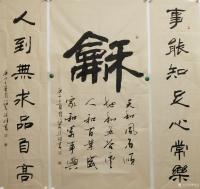 事能知足心常樂
龢
天和風雨順
地和五谷豐
人和百業盛
家和萬事興
人到無求品自高